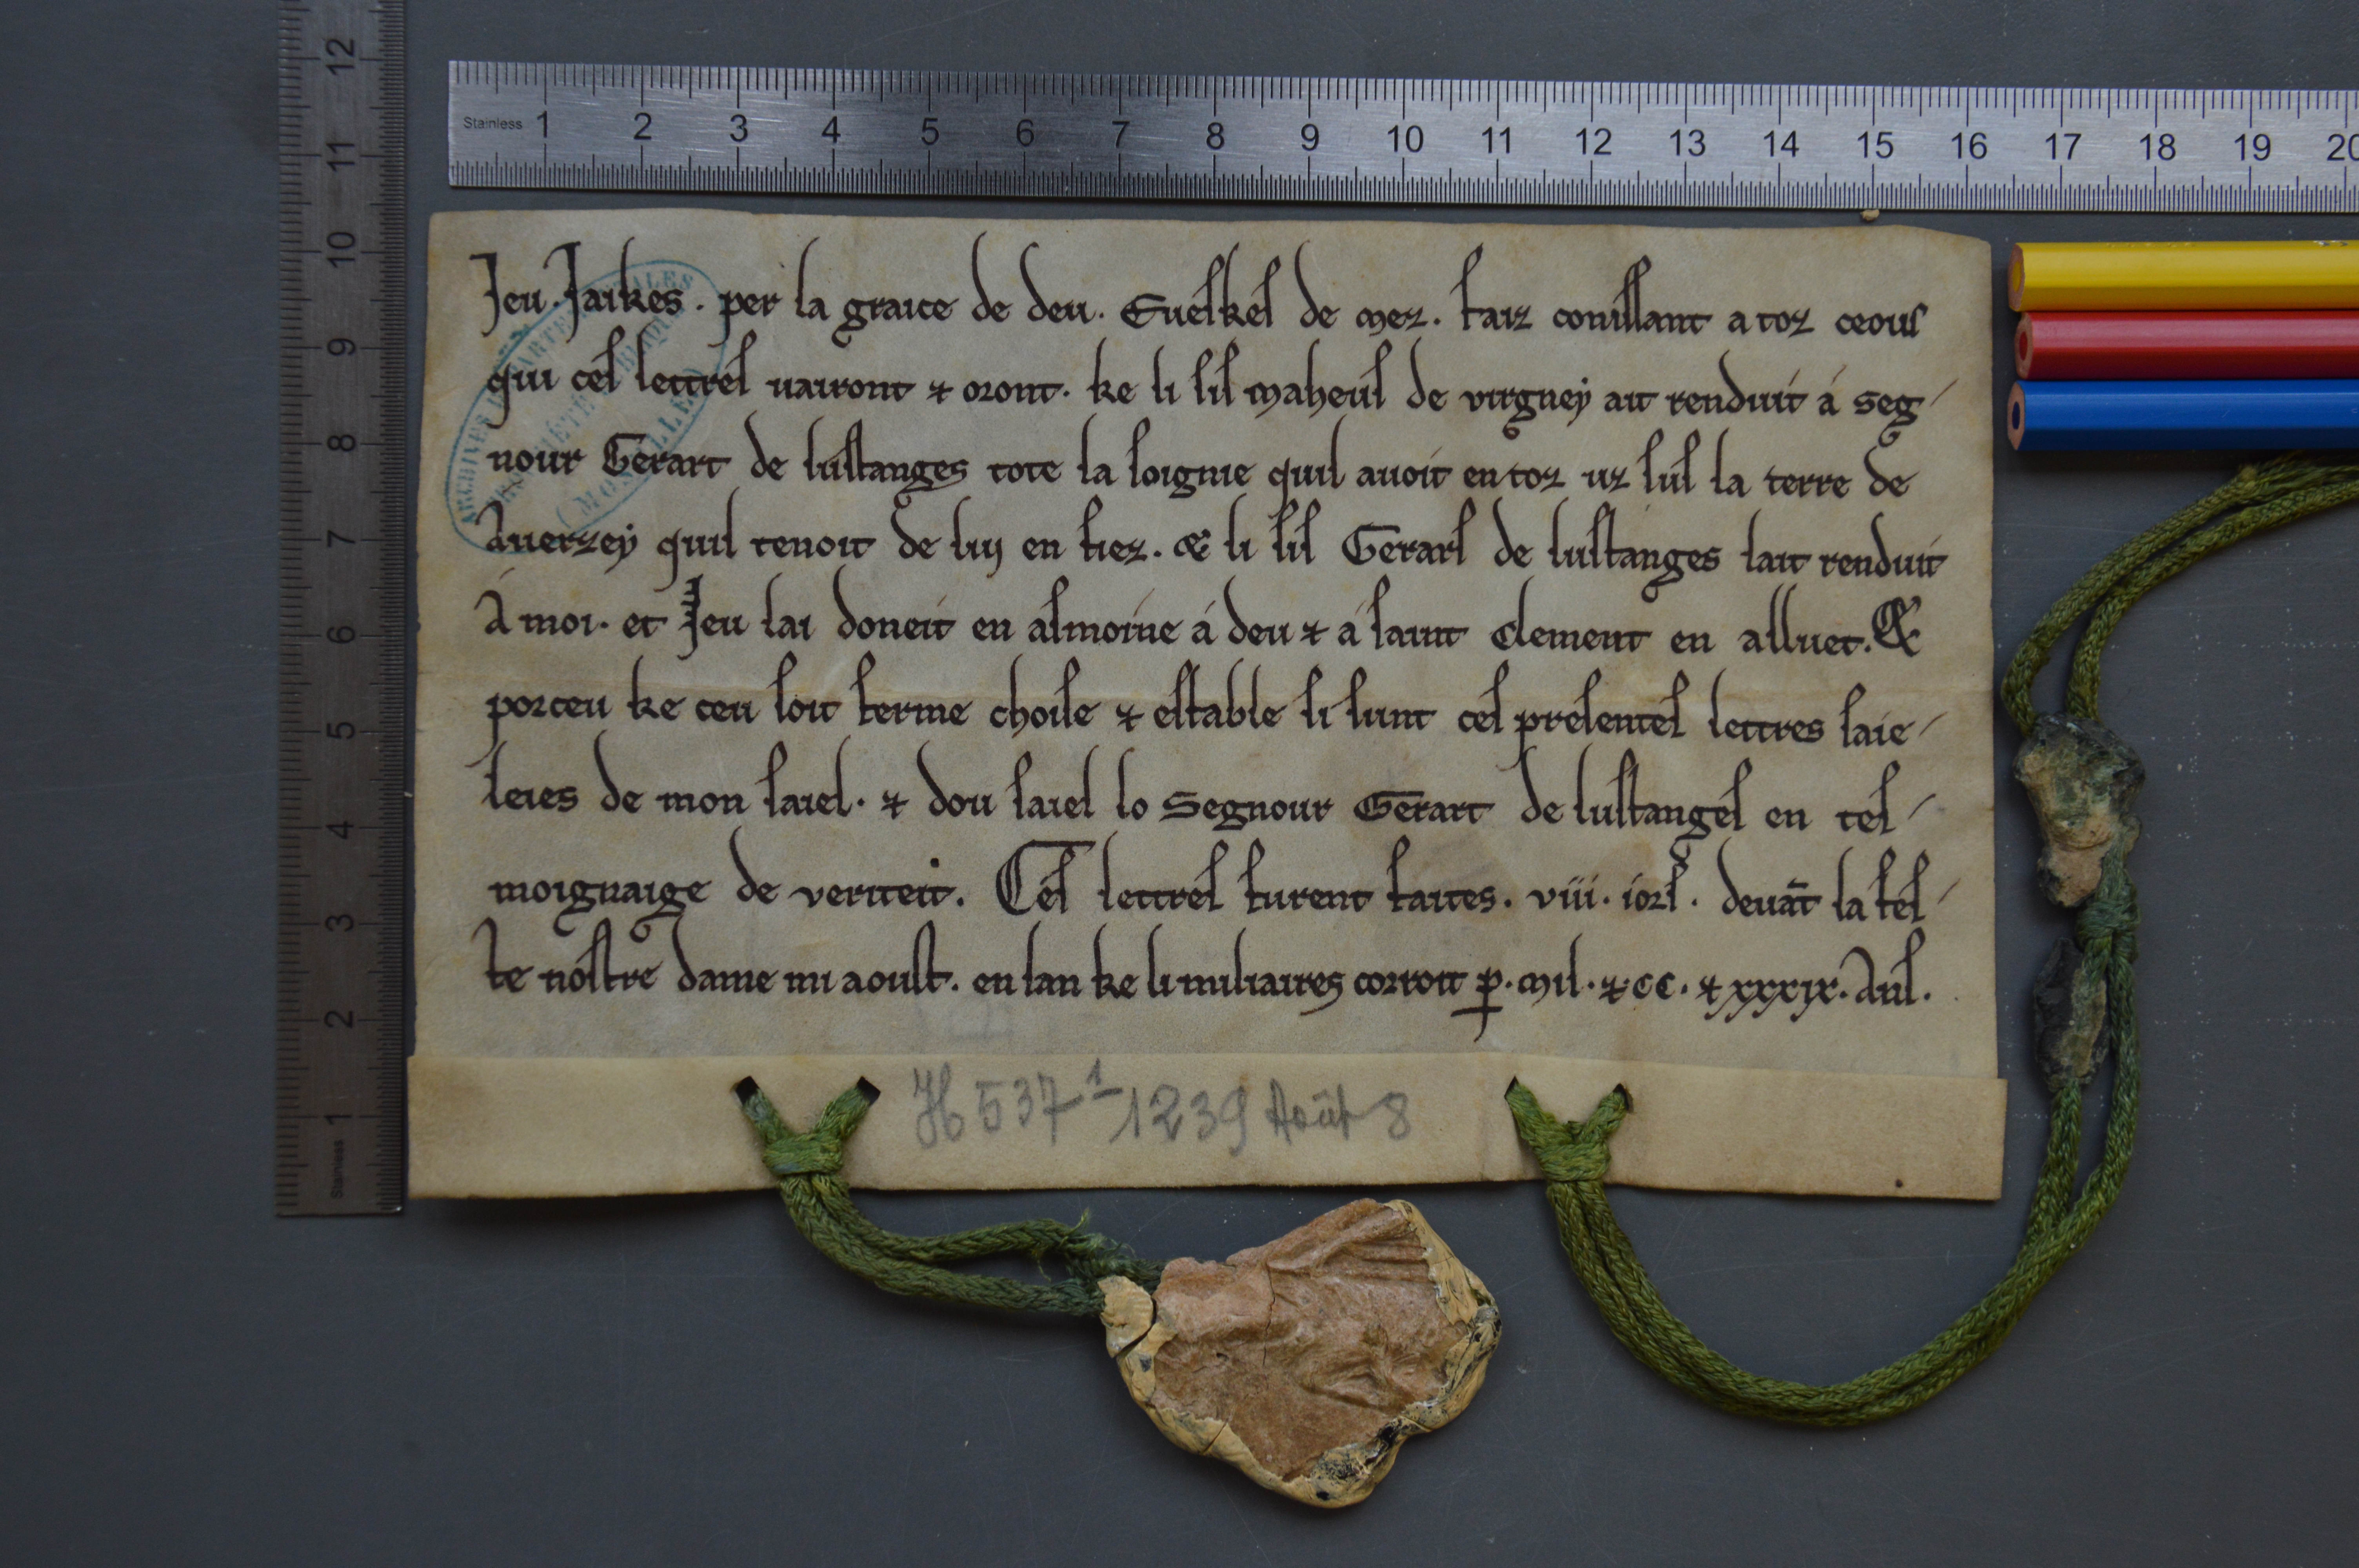 Jeu. Jaikes. per la graice de deu. Eveskes de mez. faiz conissant a toz ceous
qui ces lettres vairont ⁊ oront. ke li sis maheus de virgney ait renduit á seg-
nour Gerart de lustanges tote la soignie quil avoit en toz uz sus la terre de
Averzey quil tenoit de luy en fiez. & li sis Gerars de lustanges lait renduit
À moi. et Jeu lai doneit en asmoine á deu ⁊ á saint Clement en alluet. &
porceu ke ceu soit ferme chose ⁊ estable si sunt ces presentes lettres saie-
leies de mon saiel. ⁊ dou saiel lo Segnour Gerart de lustanges en tes-
moignaige de veriteit. Ces lettres furent faites. viii. iors. devāt la fes-
te nostre dame mi aoust. en lan ke li miliaires corroit ꝑ. mil. ⁊ CC. ⁊ xxxix. Ans.
H 537-1 1239 Août 8
ARCHIVES DÉPARTEMENTALES
(MOSELLE)
Stainless 1 2 3 4 5 6 7 8 9 10 11 12 13 14 15 16 17 18 19 20
Stainless 1 2 3 4 5 6 7 8 9 10 11 12